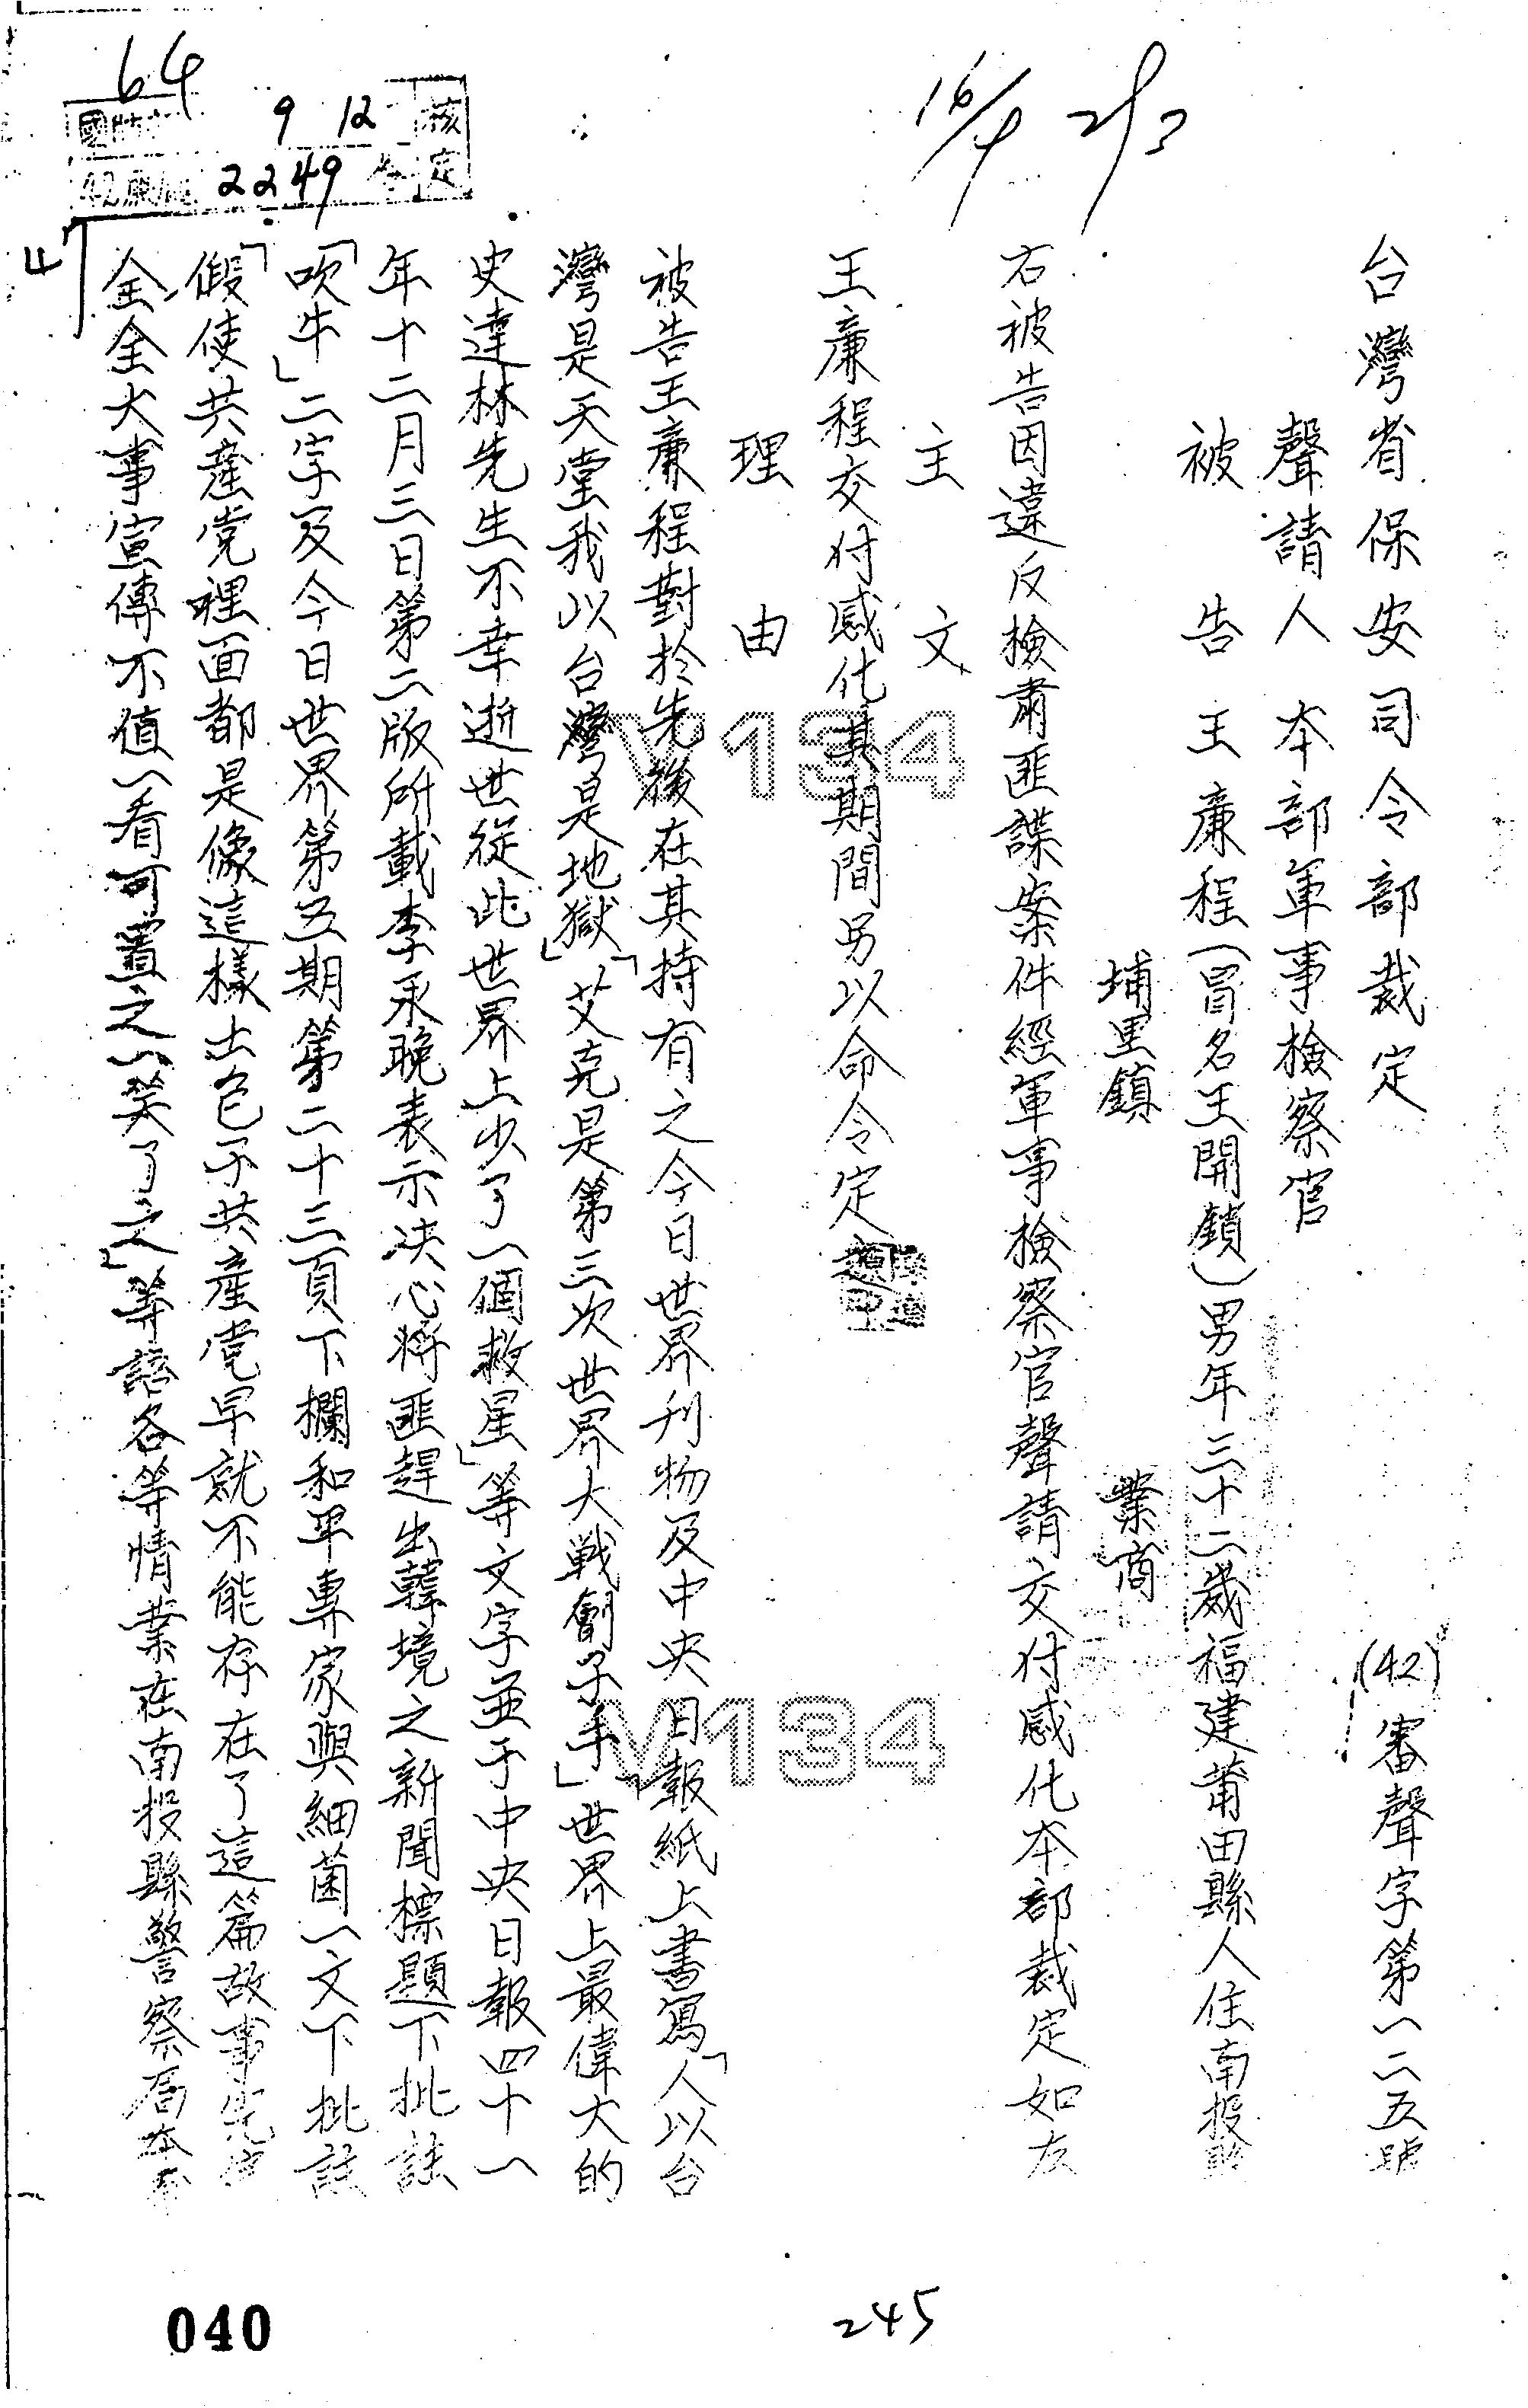 64
國防
9 12
核定
2249
16/4
台灣省保安司令部裁定
(42)審聲字第一二五號
聲請人 本部軍事檢察官
被告 王廉程(冒名王開鎖)男年三十二歲福建莆田縣人住南投縣
埔里鎮 業商
右被告因違反檢肅匪諜案件經軍事檢察官聲請交付感化本部裁定如左
主文
王廉程交付感化其期間另以命令定之
理由
被告王廉程對於先後在其持有之今日世界刊物及中央日報紙上書寫「人以台
灣是天堂我以台灣是地獄」「艾克是第三次世界大戰劊子手」「世界上最偉大的
史達林先生不幸逝世從此世界上少了一個救星」等文字並于中央日報四十一
年十二月三日第二版所載李承晚表示決心將匪趕出韓境之新聞標題下批註
「吹牛」二字及今日世界第五期第二十三頁下欄和平專家與細菌一文下批註
「假使共產党裡面都是像這樣土包子共產党早就不能存在了這篇故事完
全全大事宣傳不值一看可置之一笑了之」等語各等情業在南投縣警察局本部
040
245
V134
V134